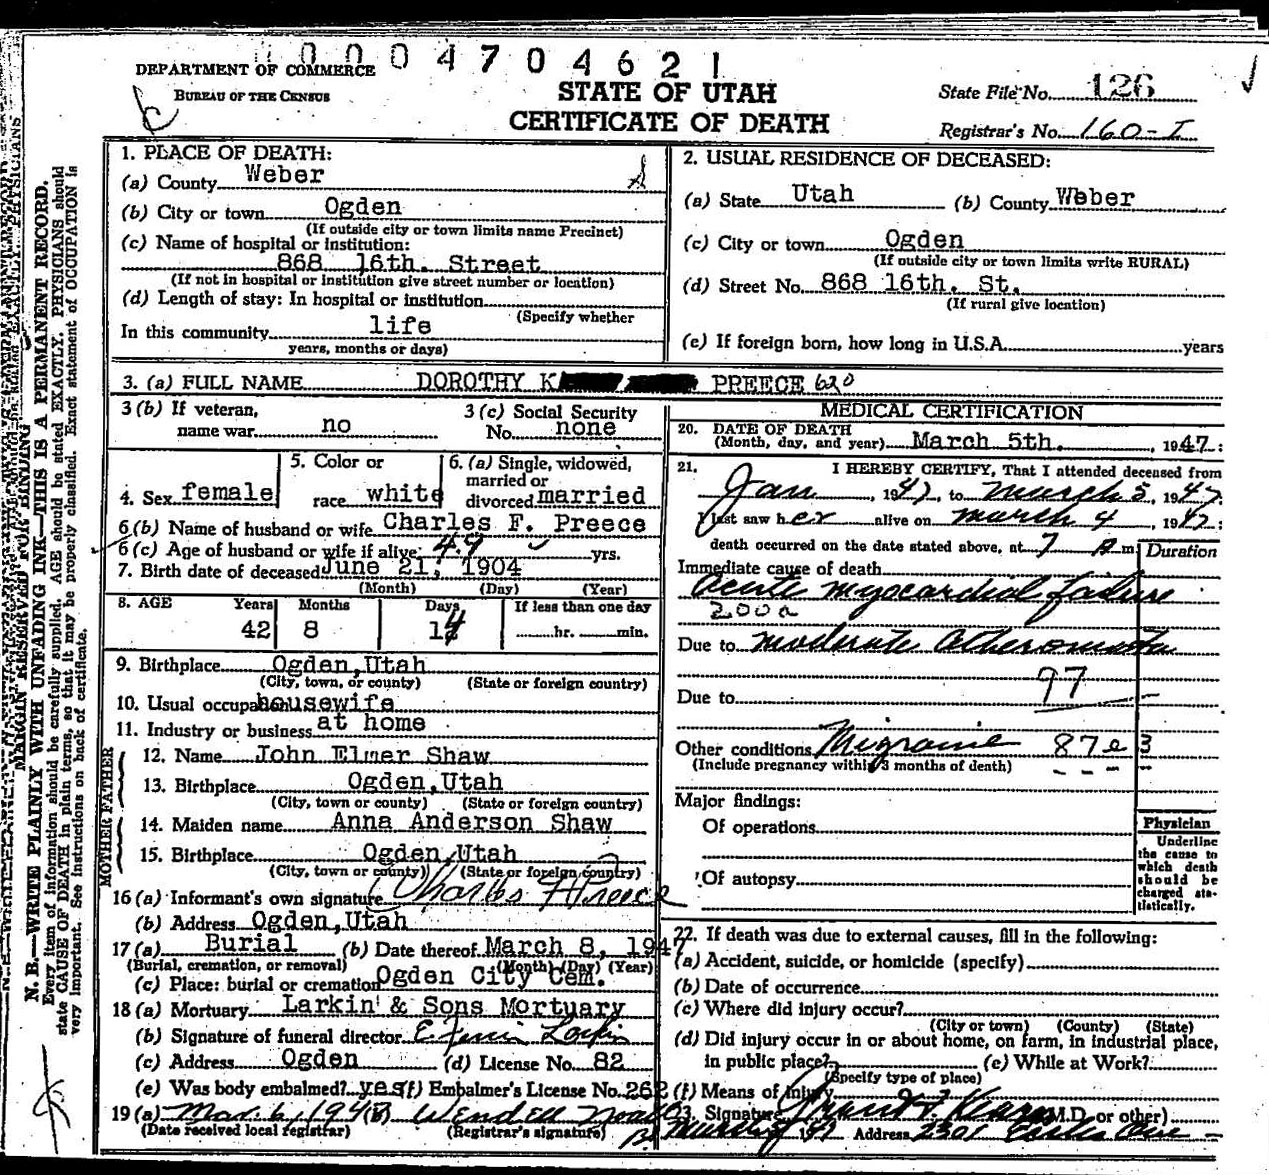 0004704621
DEPARTMENT OF COMMERCE
BUREAU OF THE CENSUS
STATE OF UTAH
CERTIFICATE OF DEATH
State File No. 126
Registrar's No. 160-I
1. PLACE OF DEATH:
(a) County Weber
(b) City or town Ogden
(If outside city or town limits name Precinct)
(c) Name of hospital or institution:
868 16th. Street
(If not in hospital or institution give street number or location)
(d) Length of stay: In hospital or institution
(Specify whether
In this community life
years, months or days)
2. USUAL RESIDENCE OF DECEASED:
(a) State Utah (b) County Weber
(c) City or town Ogden
(If outside city or town limits write RURAL)
(d) Street No. 868 16th. St.
(If rural give location)
(e) If foreign born, how long in U.S.A. years
3. (a) FULL NAME DOROTHY K PREECE 620
3 (b) If veteran,
name war no
3 (c) Social Security
No. none
4. Sex female
5. Color or
race white
6. (a) Single, widowed,
married or
divorced married
6 (b) Name of husband or wife Charles F. Preece
6 (c) Age of husband or wife if alive 49 yrs.
7. Birth date of deceased June 21, 1904
(Month) (Day) (Year)
8. AGE Years Months Days If less than one day
42 8 14 hr. min.
9. Birthplace Ogden, Utah
(City, town, or county) (State or foreign country)
10. Usual occupation housewife
11. Industry or business at home
FATHER
12. Name John Elmer Shaw
13. Birthplace Ogden, Utah
(City, town or county) (State or foreign country)
MOTHER
14. Maiden name Anna Anderson Shaw
15. Birthplace Ogden, Utah
(City, town or county) (State or foreign country)
16 (a) Informant's own signature Charles F Preece
(b) Address Ogden, Utah
17 (a) Burial (b) Date thereof March 8, 1947
(Burial, cremation, or removal) (Month) (Day) (Year)
(c) Place: burial or cremation Ogden City Cem.
18 (a) Mortuary Larkin & Sons Mortuary
(b) Signature of funeral director Larkin
(c) Address Ogden (d) License No. 82
(e) Was body embalmed? yes (f) Embalmer's License No. 262
19 (a) Mar. 6, 194 (b) Wendell
(Date received local registrar) (Registrar's signature)
MEDICAL CERTIFICATION
20. DATE OF DEATH
(Month, day, and year) March 5th. , 1947:
21. I HEREBY CERTIFY, That I attended deceased from
Jan , 1947, to March 5, 1947
I last saw her alive on March 4 , 1947:
death occurred on the date stated above, at 7 A m.
Duration
Immediate cause of death
Acute myocardial failure
200a
Due to moderate atheromata
97
Due to
Other conditions Migraine 87e 3
(Include pregnancy within 3 months of death)
Major findings:
Of operations
Of autopsy
Physician
Underline
the cause to
which death
should be
charged sta-
tistically.
22. If death was due to external causes, fill in the following:
(a) Accident, suicide, or homicide (specify)
(b) Date of occurrence
(c) Where did injury occur?
(City or town) (County) (State)
(d) Did injury occur in or about home, on farm, in industrial place,
in public place? (e) While at Work?
(Specify type of place)
(f) Means of Injury
23. Signature (M.D. or other)
Address 2301
N. B.—WRITE PLAINLY WITH UNFADING INK—THIS IS A PERMANENT RECORD.
MARGIN RESERVED FOR BINDING
Every item of information should be carefully supplied. AGE should be stated EXACTLY. PHYSICIANS should
state CAUSE OF DEATH in plain terms, so that it may be properly classified. Exact statement of OCCUPATION is
very important. See instructions on back of certificate.